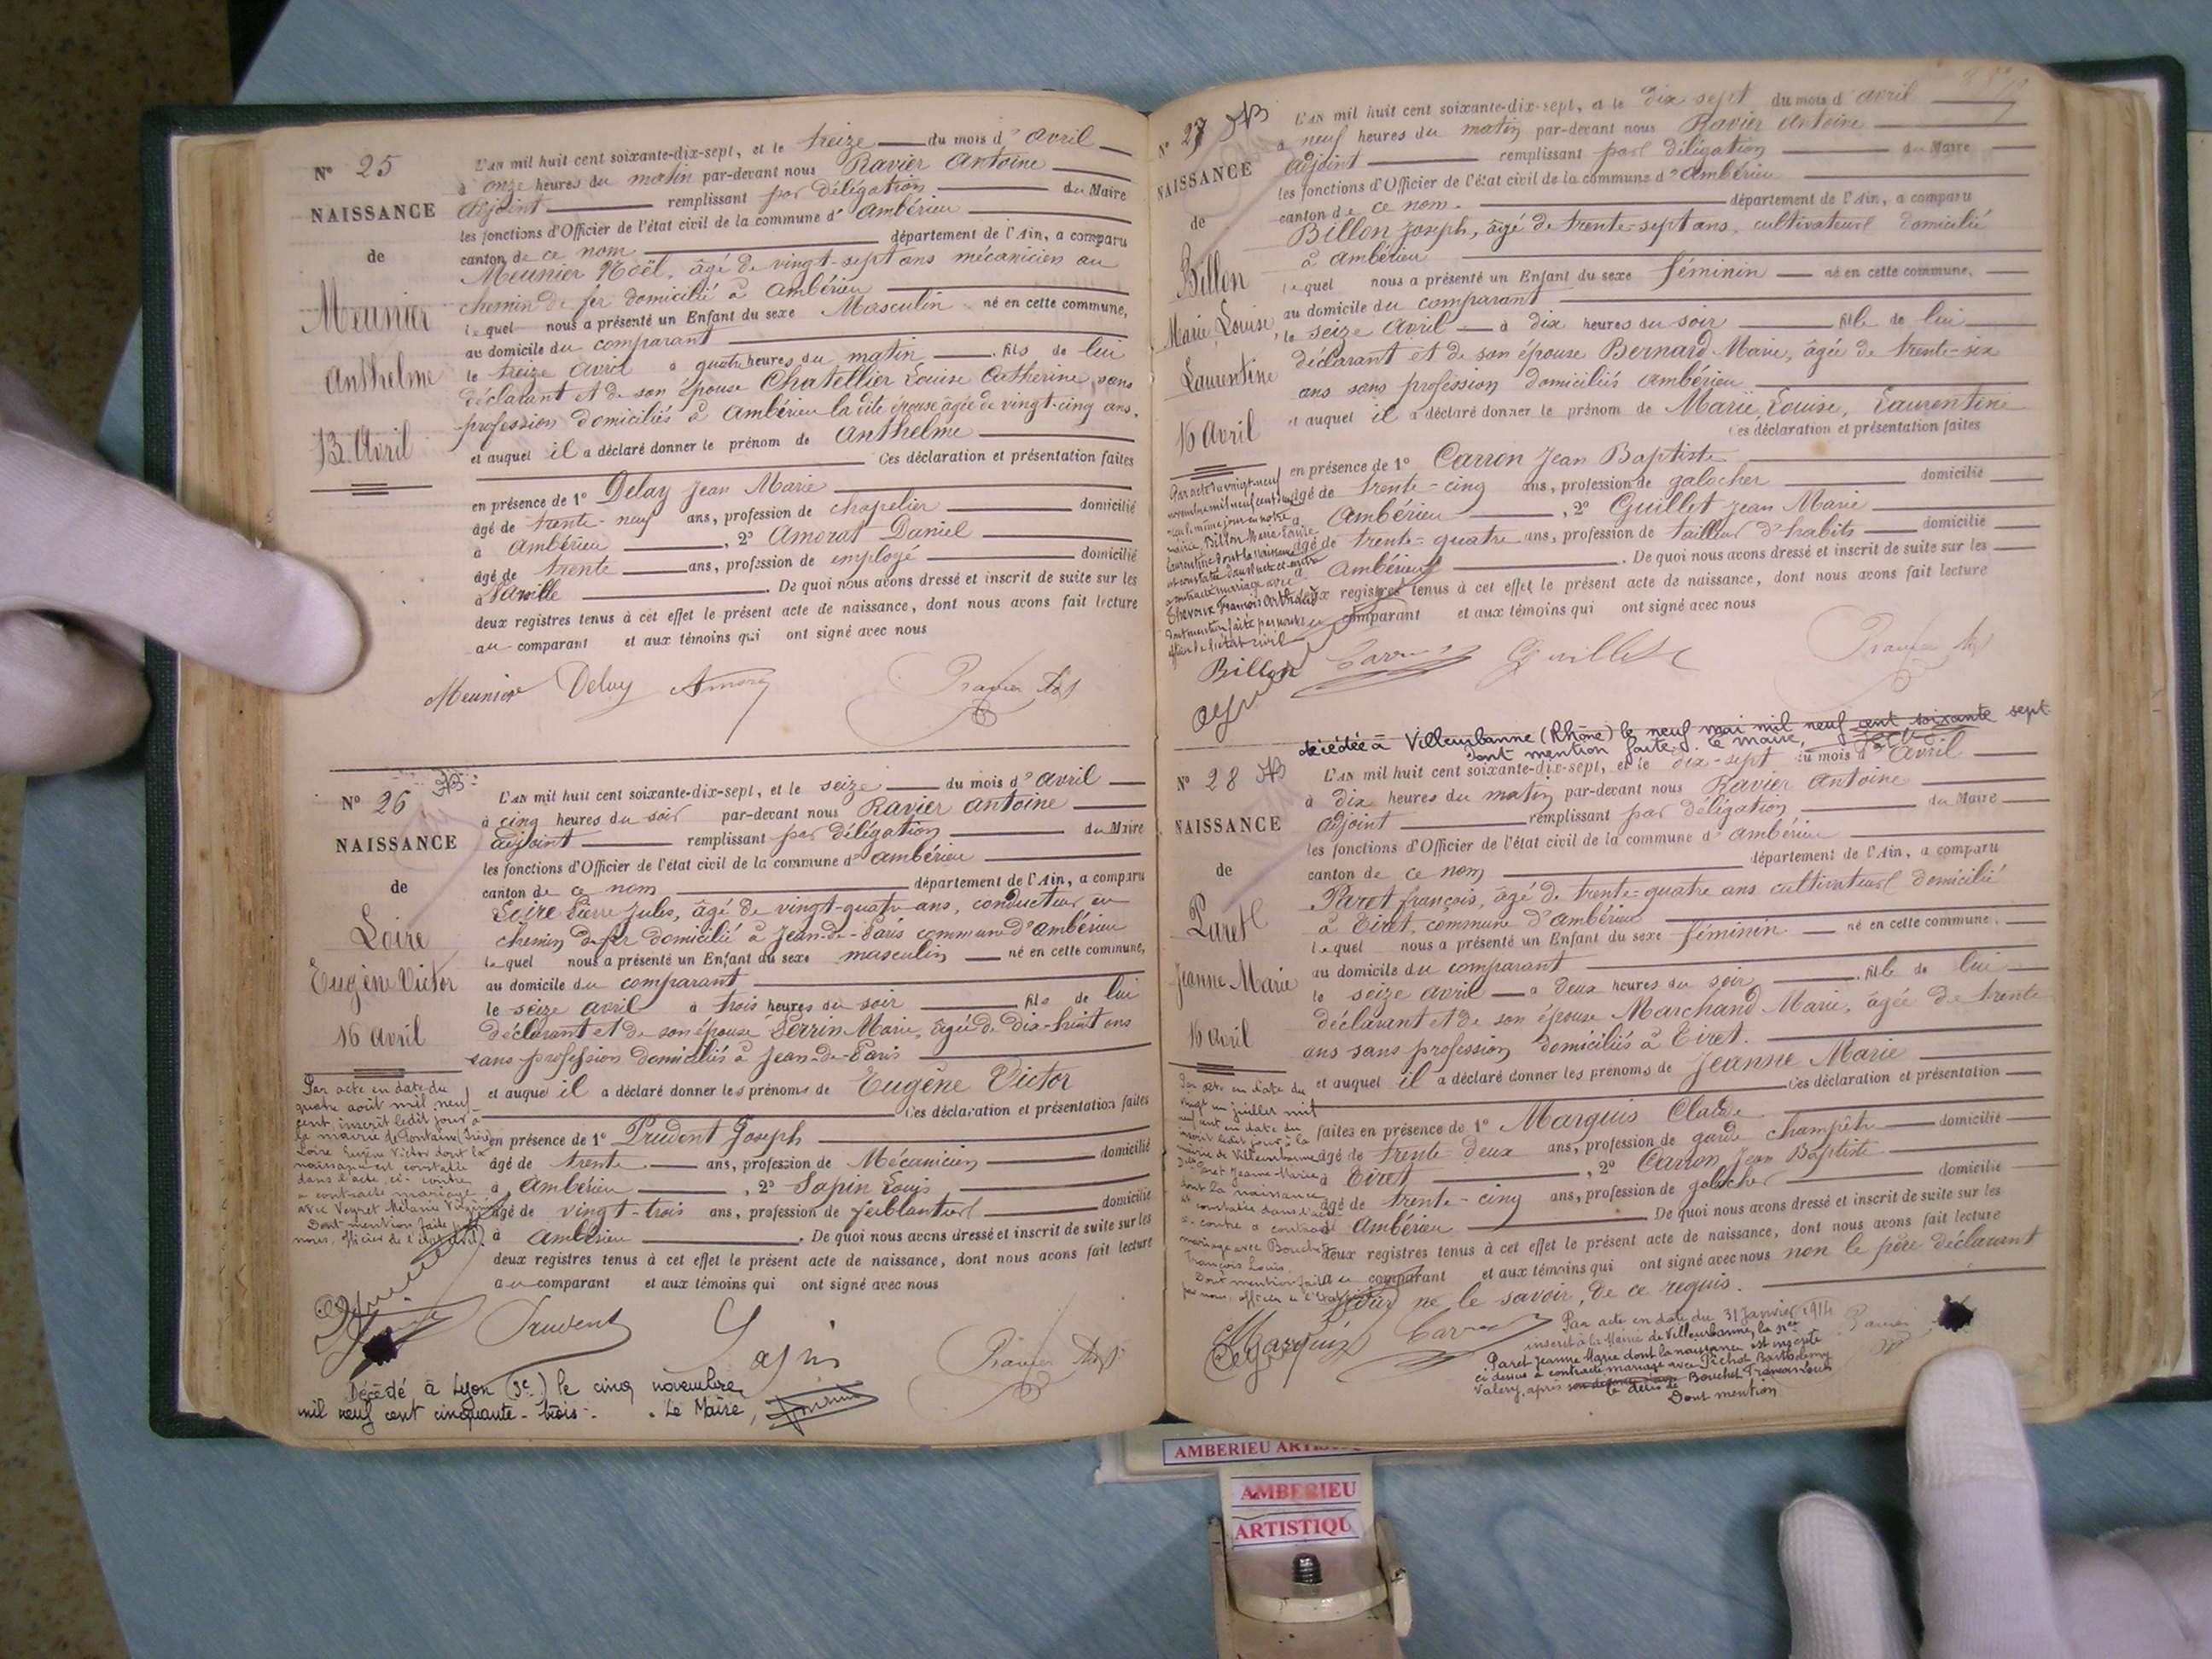 N° 25
NAISSANCE
de
Meunier
Anthelme
13 Avril
L'AN mil huit cent soixante-dix-sept, et le treize du mois d'avril
à onze heures du matin par-devant nous Ravier Antoine
adjoint remplissant par délégation du Maire
les fonctions d'Officier de l'état civil de la commune d'Ambérieu
canton de ce nom département de l'Ain, a comparu
Meunier Noël, âgé de vingt-sept ans mécanicien au
chemin de fer domicilié à Ambérieu
lequel nous a présenté un Enfant du sexe Masculin né en cette commune,
au domicile du comparant
le treize avril à quatre heures du matin fils de lui
déclarant et de son épouse Chatellier Louise Catherine, sans
profession domiciliés à Ambérieu la dite épouse âgée de vingt-cinq ans,
et auquel il a déclaré donner le prénom de Anthelme
Ces déclaration et présentation faites
en présence de 1° Delay Jean Marie
âgé de trente-neuf ans, profession de chapelier domicilié
à Ambérieu, 2° Amorat Daniel
âgé de trente ans, profession de employé domicilié
à . De quoi nous avons dressé et inscrit de suite sur les
deux registres tenus à cet effet le présent acte de naissance, dont nous avons fait lecture
au comparant et aux témoins qui ont signé avec nous
Meunier Delay Amora Ravier Adj
N° 26
NAISSANCE
de
Loire
Eugène Victor
16 Avril
L'AN mil huit cent soixante-dix-sept, et le seize du mois d'avril
à cinq heures du soir par-devant nous Ravier Antoine
adjoint remplissant par délégation du Maire
les fonctions d'Officier de l'état civil de la commune d'Ambérieu
canton de ce nom département de l'Ain, a comparu
Loire Pierre Jules, âgé de vingt-quatre ans, conducteur en
chemin de fer domicilié à Jean-de-Paris commune d'Ambérieu
lequel nous a présenté un Enfant du sexe masculin né en cette commune,
au domicile du comparant
le seize avril à trois heures du soir fils de lui
déclarant et de son épouse Perrin Marie, âgée de dix-huit ans
sans profession domiciliés à Jean-de-Paris
et auquel il a déclaré donner les prénoms de Eugène Victor
Ces déclaration et présentation faites
en présence de 1° Prudent Joseph
âgé de trente ans, profession de Mécanicien domicilié
à Ambérieu, 2° Sapin Louis
âgé de vingt-trois ans, profession de ferblantier domicilié
à Ambérieu. De quoi nous avons dressé et inscrit de suite sur les
deux registres tenus à cet effet le présent acte de naissance, dont nous avons fait lecture
au comparant et aux témoins qui ont signé avec nous
Par acte en date du
quatre août mil neuf
cent, inscrit ledit jour à
la mairie de Fontaine (Isère)
Loire Eugène Victor dont la
naissance est constatée
dans l'acte ci-contre
a contracté mariage
avec Veyret Mélanie
Dont mention faite par
nous, officier de l'état civil.
Prudent Sapin Ravier Adj
Décédé à Lyon (3e) le cinq novembre
mil neuf cent cinquante-trois. Le Maire,
N° 27
NAISSANCE
de
Billon
Marie, Louise,
Laurentine
16 Avril
L'AN mil huit cent soixante-dix-sept, et le dix sept du mois d'avril
à neuf heures du matin par-devant nous Ravier Antoine
adjoint remplissant par délégation du Maire
les fonctions d'Officier de l'état civil de la commune d'Ambérieu
canton de ce nom. département de l'Ain, a comparu
Billon Joseph, âgé de trente-sept ans, cultivateur domicilié
à Ambérieu
lequel nous a présenté un Enfant du sexe féminin né en cette commune,
au domicile du comparant
le seize Avril à dix heures du soir fille de lui
déclarant et de son épouse Bernard Marie, âgée de trente-six
ans sans profession domiciliés Ambérieu
et auquel il a déclaré donner le prénom de Marie, Louise, Laurentine
Ces déclaration et présentation faites
en présence de 1° Carron Jean Baptiste
âgé de trente-cinq ans, profession de galocher domicilié
Ambérieu, 2° Guillet Jean Marie
âgé de trente-quatre ans, profession de tailleur d'habits domicilié
à Ambérieu. De quoi nous avons dressé et inscrit de suite sur les
deux registres tenus à cet effet le présent acte de naissance, dont nous avons fait lecture
au comparant et aux témoins qui ont signé avec nous
Par acte du vingt neuf
novembre mil neuf cent
mairie, Billon Marie Louise
Laurentine dont la naissance
est constatée dans l'acte ci-contre
a contracté mariage avec
Thevoux François
dont mention faite par nous
officier de l'état civil
Billon Carron Guillet Ravier Adj
décédée à Villeurbanne (Rhône) le neuf mai mil neuf cent soixante sept
Dont mention faite. Le Maire,
N° 28
NAISSANCE
de
Paret
Jeanne Marie
16 Avril
L'AN mil huit cent soixante-dix-sept, et le dix-sept du mois d'Avril
à dix heures du matin par-devant nous Ravier Antoine
adjoint remplissant par délégation du Maire
les fonctions d'Officier de l'état civil de la commune d'Ambérieu
canton de ce nom département de l'Ain, a comparu
Paret françois, âgé de trente-quatre ans cultivateur domicilié
à Tiret, commune d'Ambérieu
lequel nous a présenté un Enfant du sexe féminin né en cette commune,
au domicile du comparant
le seize avril à deux heures du soir, fille de lui
déclarant et de son épouse Marchand Marie, âgée de trente
ans sans profession domiciliés à Tiret.
et auquel il a déclaré donner les prénoms de Jeanne Marie
Ces déclaration et présentation
faites en présence de 1° Marquis Claude
âgé de trente deux ans, profession de garde champêtre domicilié
à Tiret, 2° Carron Jean Baptiste
âgé de trente-cinq ans, profession de galocher domicilié
à Ambérieu De quoi nous avons dressé et inscrit de suite sur les
deux registres tenus à cet effet le présent acte de naissance, dont nous avons fait lecture
au comparant et aux témoins qui ont signé avec nous non le père déclarant
pour ne le savoir, de ce requis.
Par acte en date du
vingt un juillet mil
inscrit ledit jour à la
mairie de Villeurbanne
Paret Jeanne-Marie
dont la naissance
est constatée dans l'acte
ci-contre a contracté
mariage avec Bouchet
François Louis.
Dont mention faite
par nous, officier de l'état civil
Marquis Carron Ravier
Par acte en date du 31 Janvier 1914
inscrit à la Mairie de Villeurbanne, la
Paret Jeanne Marie dont la naissance est inscrite
ci dessus a contracté mariage avec Pichot Barthélemy
Valery, après le décès de Bouchet François Louis
Dont mention
AMBERIEU ARTIS
AMBERIEU
ARTISTIQU